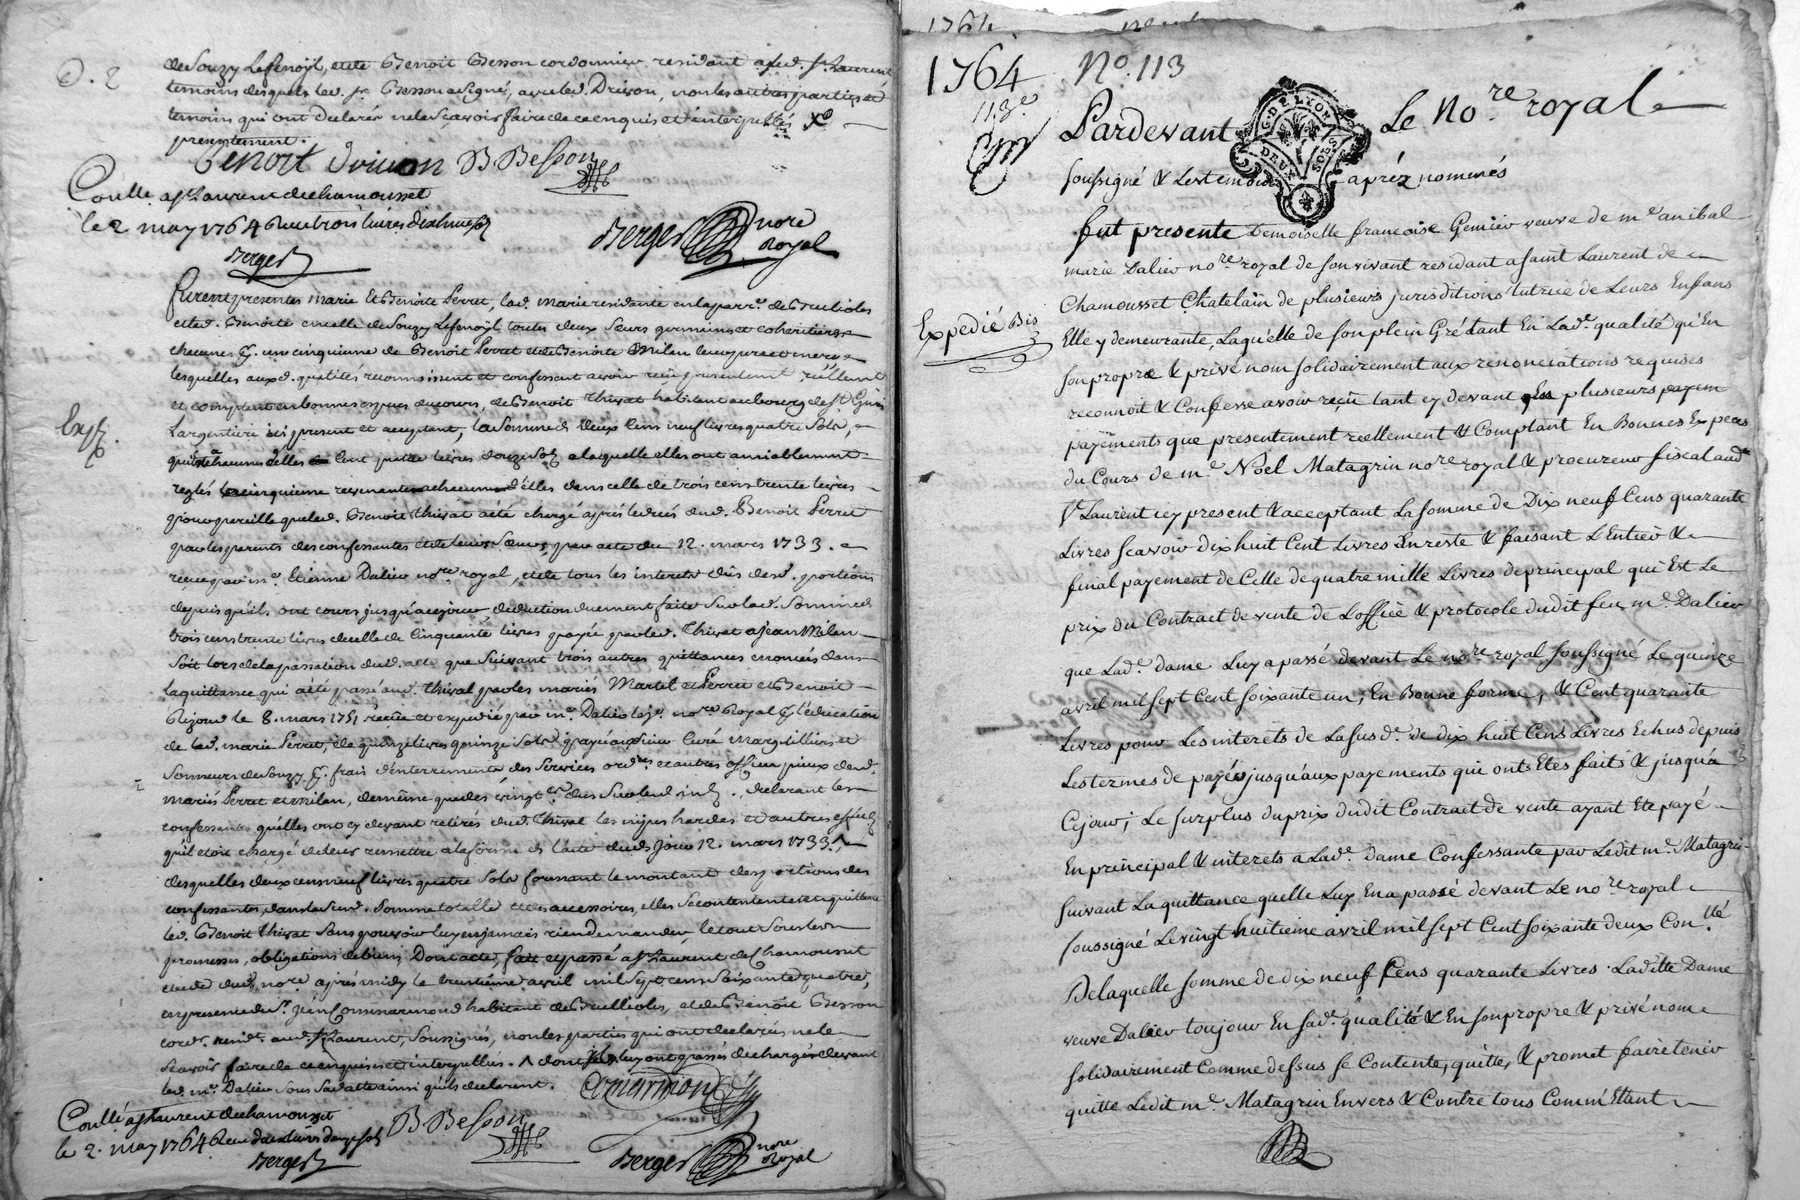 de Souzy Lefenoÿl, et de Benoit Besson cordonnier residant aud. St. Laurent
temoins desquels led. sr. Besson a signé, avec led. Drivon, non les autres parties et
temoin qui ont declaré ne le scavoir faire de ce enquis et interpellés
presentement.
Benoit drivon B Besson
Conllé a st Laurent de chamousset
le 2 may 1764 Reçu trois livres
Berger
Berger nore Royal
Furent presentes marie et Benoite Perret, lad. marie residante en la parr. de Brulioles
et lad. Benoite en celle de Souzy Lefenoÿl toutes deux sœurs germaines et coheritieres
chacunes p. un cinquieme de Benoit Perret et de Benoite Milan leurs pere et mere
lesquelles auxd. qualités reconnoissent et confessent avoir reçu presentement réellement
et comptant en bonnes especes du cours, de Benoit Thivat habitant au bourg de st.
Largentiere ici present et acceptant, la somme de deux cens neuf livres quatre sols,
exp.
cent quatre livres douze sols a laquelle elles ont amiablement
reglés le cinquieme revenant a chacune d'elles dans celle de trois cens trente livres
pour pareille que led. Benoit Thivat a été chargé après le decés dud. Benoit Perret
par les parents des confessantes et de leurs sœurs, par acte du 12. mars 1733.
reçue par me. Etienne Dalier nore royal, et de tous les interets dûs desd. portions
depuis qu'ils ont cours jusqu'aujour, deduction duement faite sur lad. somme de
trois cens trente livres de celle de cinquante livres payée par led. Thivat a jean Milan
soit lors de la passation dud. acte que suivant trois autres quittances enoncées dans
la quittance qui a été passé aud. Thivat par les mariés Martel et Perret et Benoit
le 8. mars 1751 recue et expedié par me. Dalier le je. nore Royal p. l'education
de lad. marie Perret, de quinze livres quinze sols payé aux sieur Curé marguilliers et
sonneurs de Souzy p. frais d'enterrements, des services ordres et autres offices pieux desd.
mariés Perret et milan, de même que des vingt declarant les
confessantes qu'elles ont cy devant retirés dud. Thivat les nipes hardes et autres effets
qu'il etoit chargé de leur remettre a la forme de l'acte dud. jour 12. mars 1733.
desquelles deux cens neuf livres quatre sols formant le montant des portions des
confessantes, dans lad. somme totalle et des accessoires, elles se contentent et en quittent
led. Benoit Thivat sans pouvoir luy en jamais rien demander, le tout sous les
promesses, obligations de biens Dont acte, fait et passé a st. Laurent de Chamousset
etude dud. nore après midy le trentième avril mil sept cens soixante quatre,
en presence de sr. Jean Commarmond habitant de Brullioles, et de Benoit Besson
cord. resid. aud. st Laurent, soussignés, non les parties qui ont declarés ne le
scavoir faire de ce enquises et interpellés. dont ils luy ont passés decharges devant
led. me. Dalier sous sa datte ainsi qu'ils declarent.
Comarmond
Conllé a st Laurent de chamousset
B Besson
le 2. may 1764 Reçu
Berger
Berger nore Royal
1764
1764 No. 113
113e
Pardevant Le Nore royal
G. DE LYON
DEUX SOLS
soussigné & les temoins apréz nommés
fut presente Demoiselle françoise Genier veuve de me anibal
marie Dalier nore royal de son vivant residant a saint Laurent de
Chamousset Chatelain de plusieurs jurisditions tutrice de Leurs Enfans
Expedié Bis
Elle y demeurante, Laquelle de son plein Gré tant En Lade. qualité qu'En
son propre & privé nom solidairement aux renonciations requises
reconnoit & Confesse avoir reçû tant cy devant En plusieurs payem
payements que presentement reellement & Comptant En Bonnes Especes
du Cours de me Noël Matagrin nore royal & procureur fiscal aud.
st Laurent icy present & acceptant La somme de Dix neuf Cens quarante
Livres scavoir dix huit Cent Livres En reste & faisant L'Entier &
final payement de Celle de quatre mille Livres de principal qui Est Le
prix du Contract de vente de Loffice & protocole dudit feu me. Dalier
que Lade. dame Luy a passé devant Le nore royal soussigné Le quinze
avril mil sept Cent soixante un, En Bonne forme, & Cent quarante
Livres pour Les interêts de La susde. de dix huit Cens Livres Echus depuis
Les termes de payés jusqu'aux payements qui ont Etes faits & jusqu'a
Cejour; Le surplus du prix dudit Contract de vente ayant Eté payé
En principal & interets a Lade. Dame Confessante par Ledit me. Matagrin
suivant La quittance quelle Luy En a passé devant Le nore royal
soussigné Le vingt huitieme avril mil sept Cent soixante deux Con.llé
De laquelle somme de dix neuf Cens quarante Livres Ladite Dame
veuve Dalier toujour En sade. qualité & En son propre & privé nom
solidairement Comme dessus se Contente, quitte, & promet faire tenir
quitte Ledit me. Matagrin Envers & Contre tous Comm'Ettant